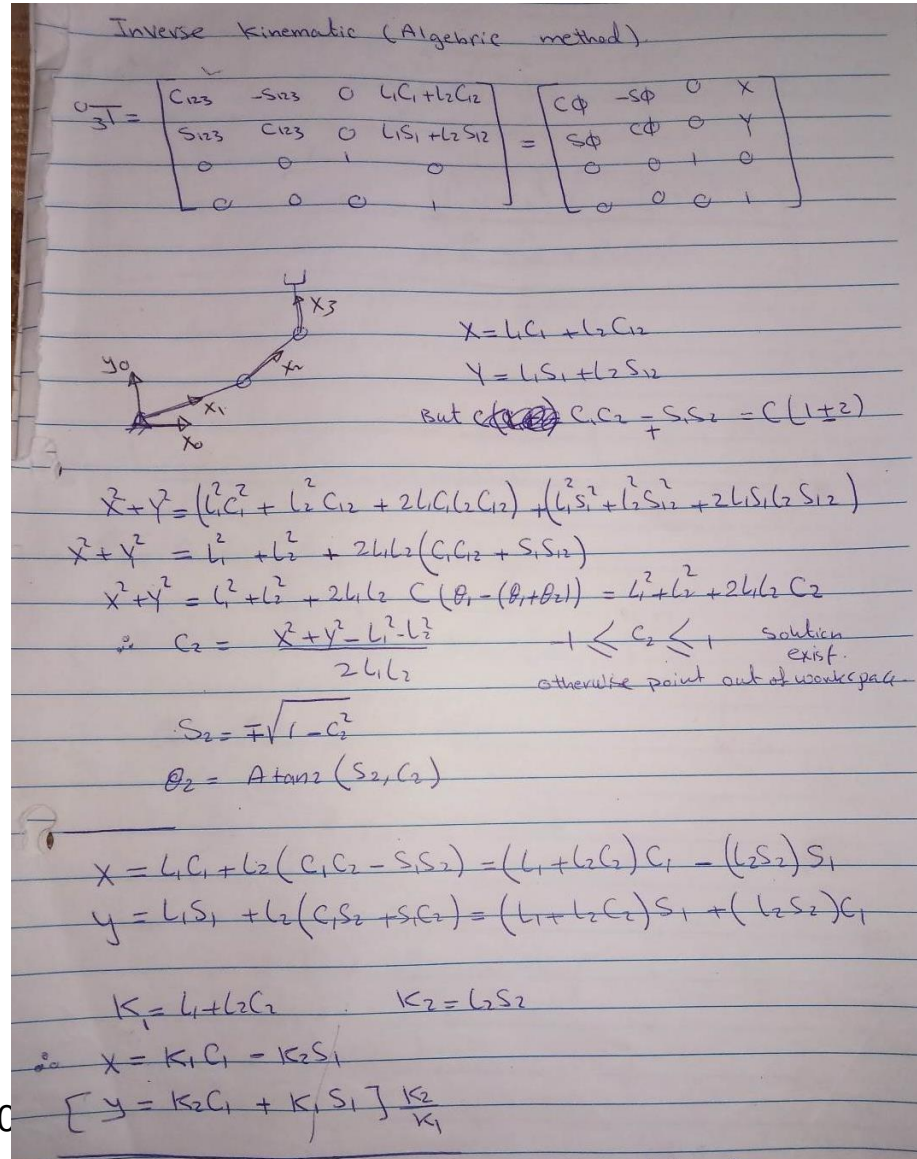 Inverse Kinematic (Algebric method)
⁰₃T = [C123 -S123 0 L1C1+L2C12; S123 C123 0 L1S1+L2S12; 0 0 1 0; 0 0 0 1] = [Cϕ -Sϕ 0 X; Sϕ Cϕ 0 Y; 0 0 1 0; 0 0 0 1]
X3
X = L1C1 + L2C12
y0 X2
Y = L1S1 + L2S12
X1
But C1C2 ∓ S1S2 = C(1±2)
X0
X² + Y² = (L1²C1² + L2²C12 + 2L1C1L2C12) + (L1²S1² + L2²S12² + 2L1S1L2S12)
X² + Y² = L1² + L2² + 2L1L2(C1C12 + S1S12)
X² + Y² = L1² + L2² + 2L1L2 C(θ1 - (θ1+θ2)) = L1² + L2² + 2L1L2 C2
∴ C2 = (X² + Y² - L1² - L2²) / 2L1L2 -1 ≤ C2 ≤ 1 solution exist.
otherwise point out of workspace
S2 = ∓√(1 - C2²)
θ2 = Atan2 (S2, C2)
X = L1C1 + L2(C1C2 - S1S2) = (L1 + L2C2) C1 - (L2S2) S1
y = L1S1 + L2(C1S2 + S1C2) = (L1 + L2C2) S1 + (L2S2) C1
K1 = L1 + L2C2 K2 = L2S2
∴ X = K1C1 - K2S1
[y = K2C1 + K1S1] K2/K1